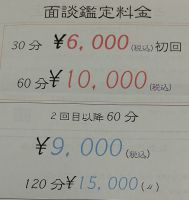 面談鑑定料金
30分 ¥6,000(税込)初回
60分 ¥10,000(税込)
2回目以降60分
¥9,000(税込)
120分¥15,000(〃)